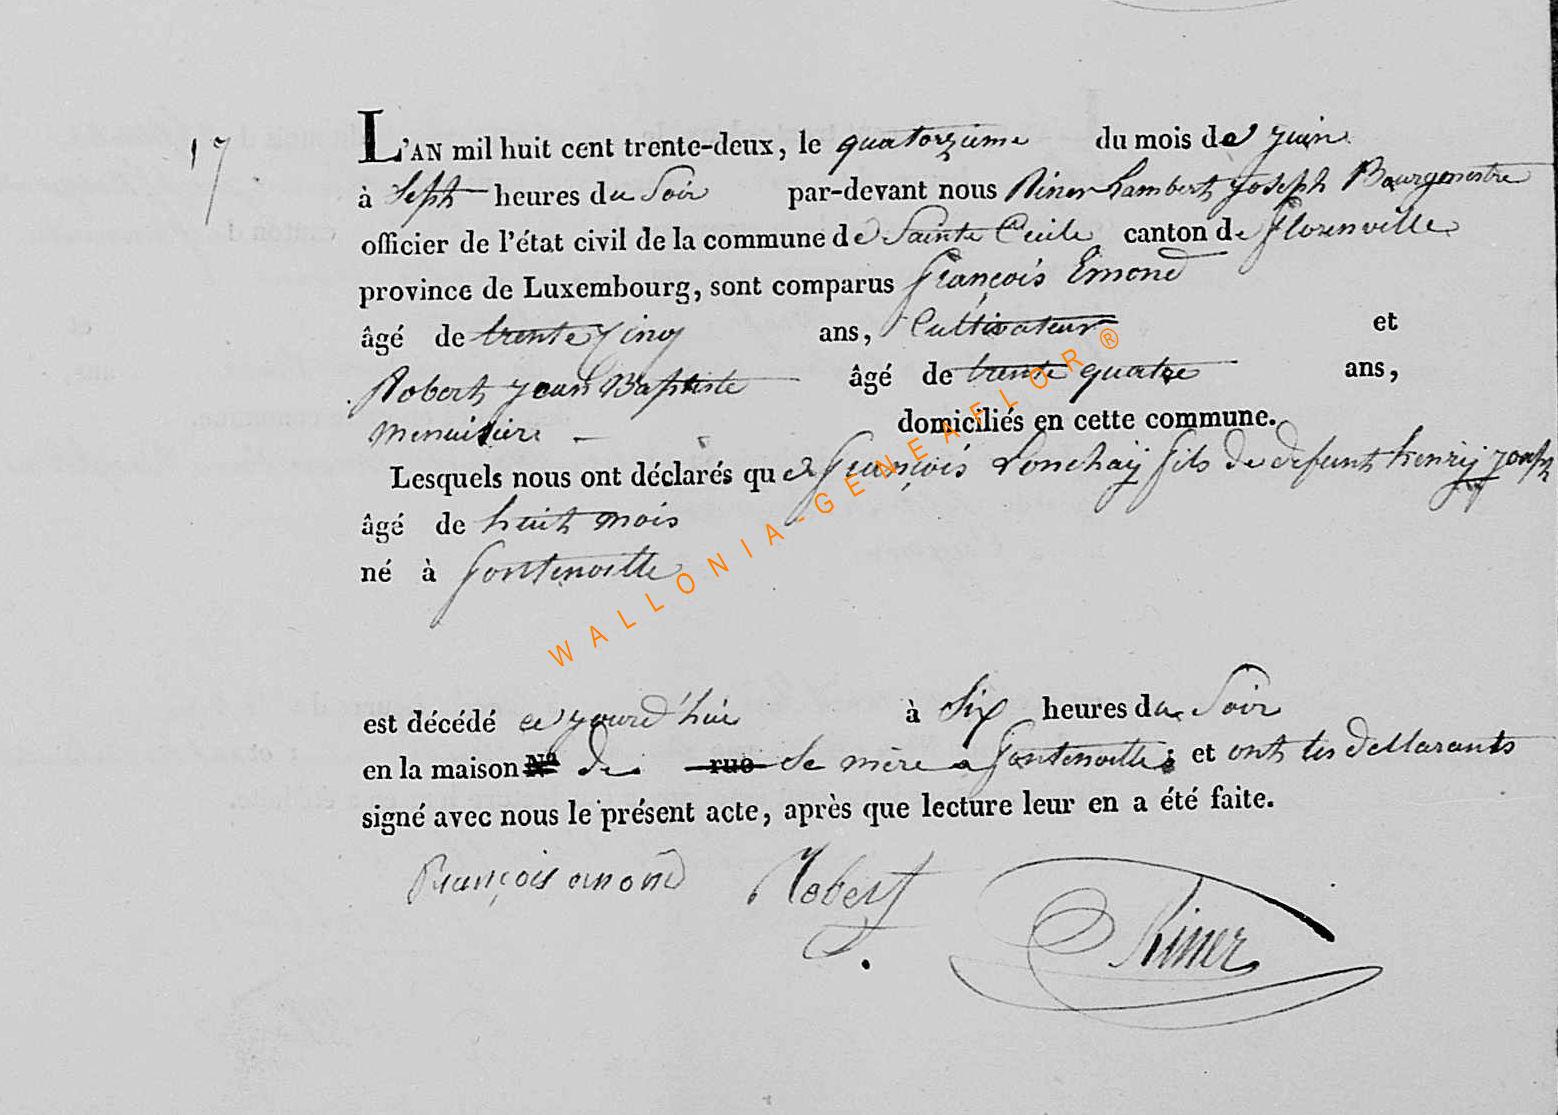 17
L'AN mil huit cent trente-deux, le quatorzieme du mois de juin
à Sept heures du Soir par-devant nous Riner Lambert Joseph Bourgmestre
officier de l'état civil de la commune de Sainte Cecile canton de Florenville
province de Luxembourg, sont comparus François Emond
âgé de trente cinq ans, Cultivateur et
Robert Jean Baptiste âgé de trente quatre ans,
menuisier domiciliés en cette commune.
Lesquels nous ont déclarés que François Lonchay fils de defunt henry joseph
âgé de huit mois
né à fontenoille
est décédé ce jourd'hui à Six heures du Soir
en la maison N° de rue Se mère a fontenoille; et ont les declarants
signé avec nous le présent acte, après que lecture leur en a été faite.
François emond Robert Riner
WALLONIA-GENEAFLOR®